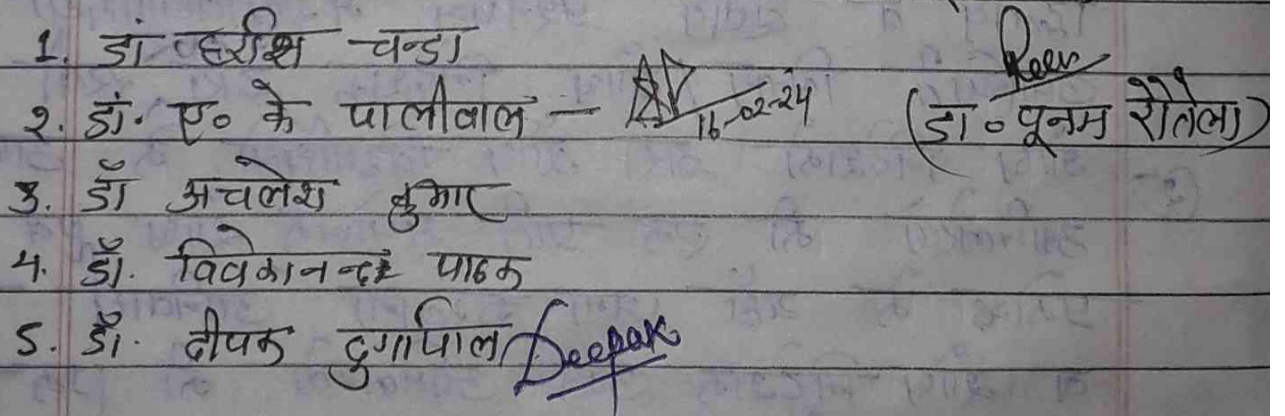 1. डां हरीश चन्द्रा
2. डां. ए० के पालीवाल - 16-02-24
(डा० पूनम रौतेला)
3. डॉ अचलेश कुमार
4. डॉ. विवेकानन्द पाठक
5. डॉ. दीपक दुर्गापाल Deepak